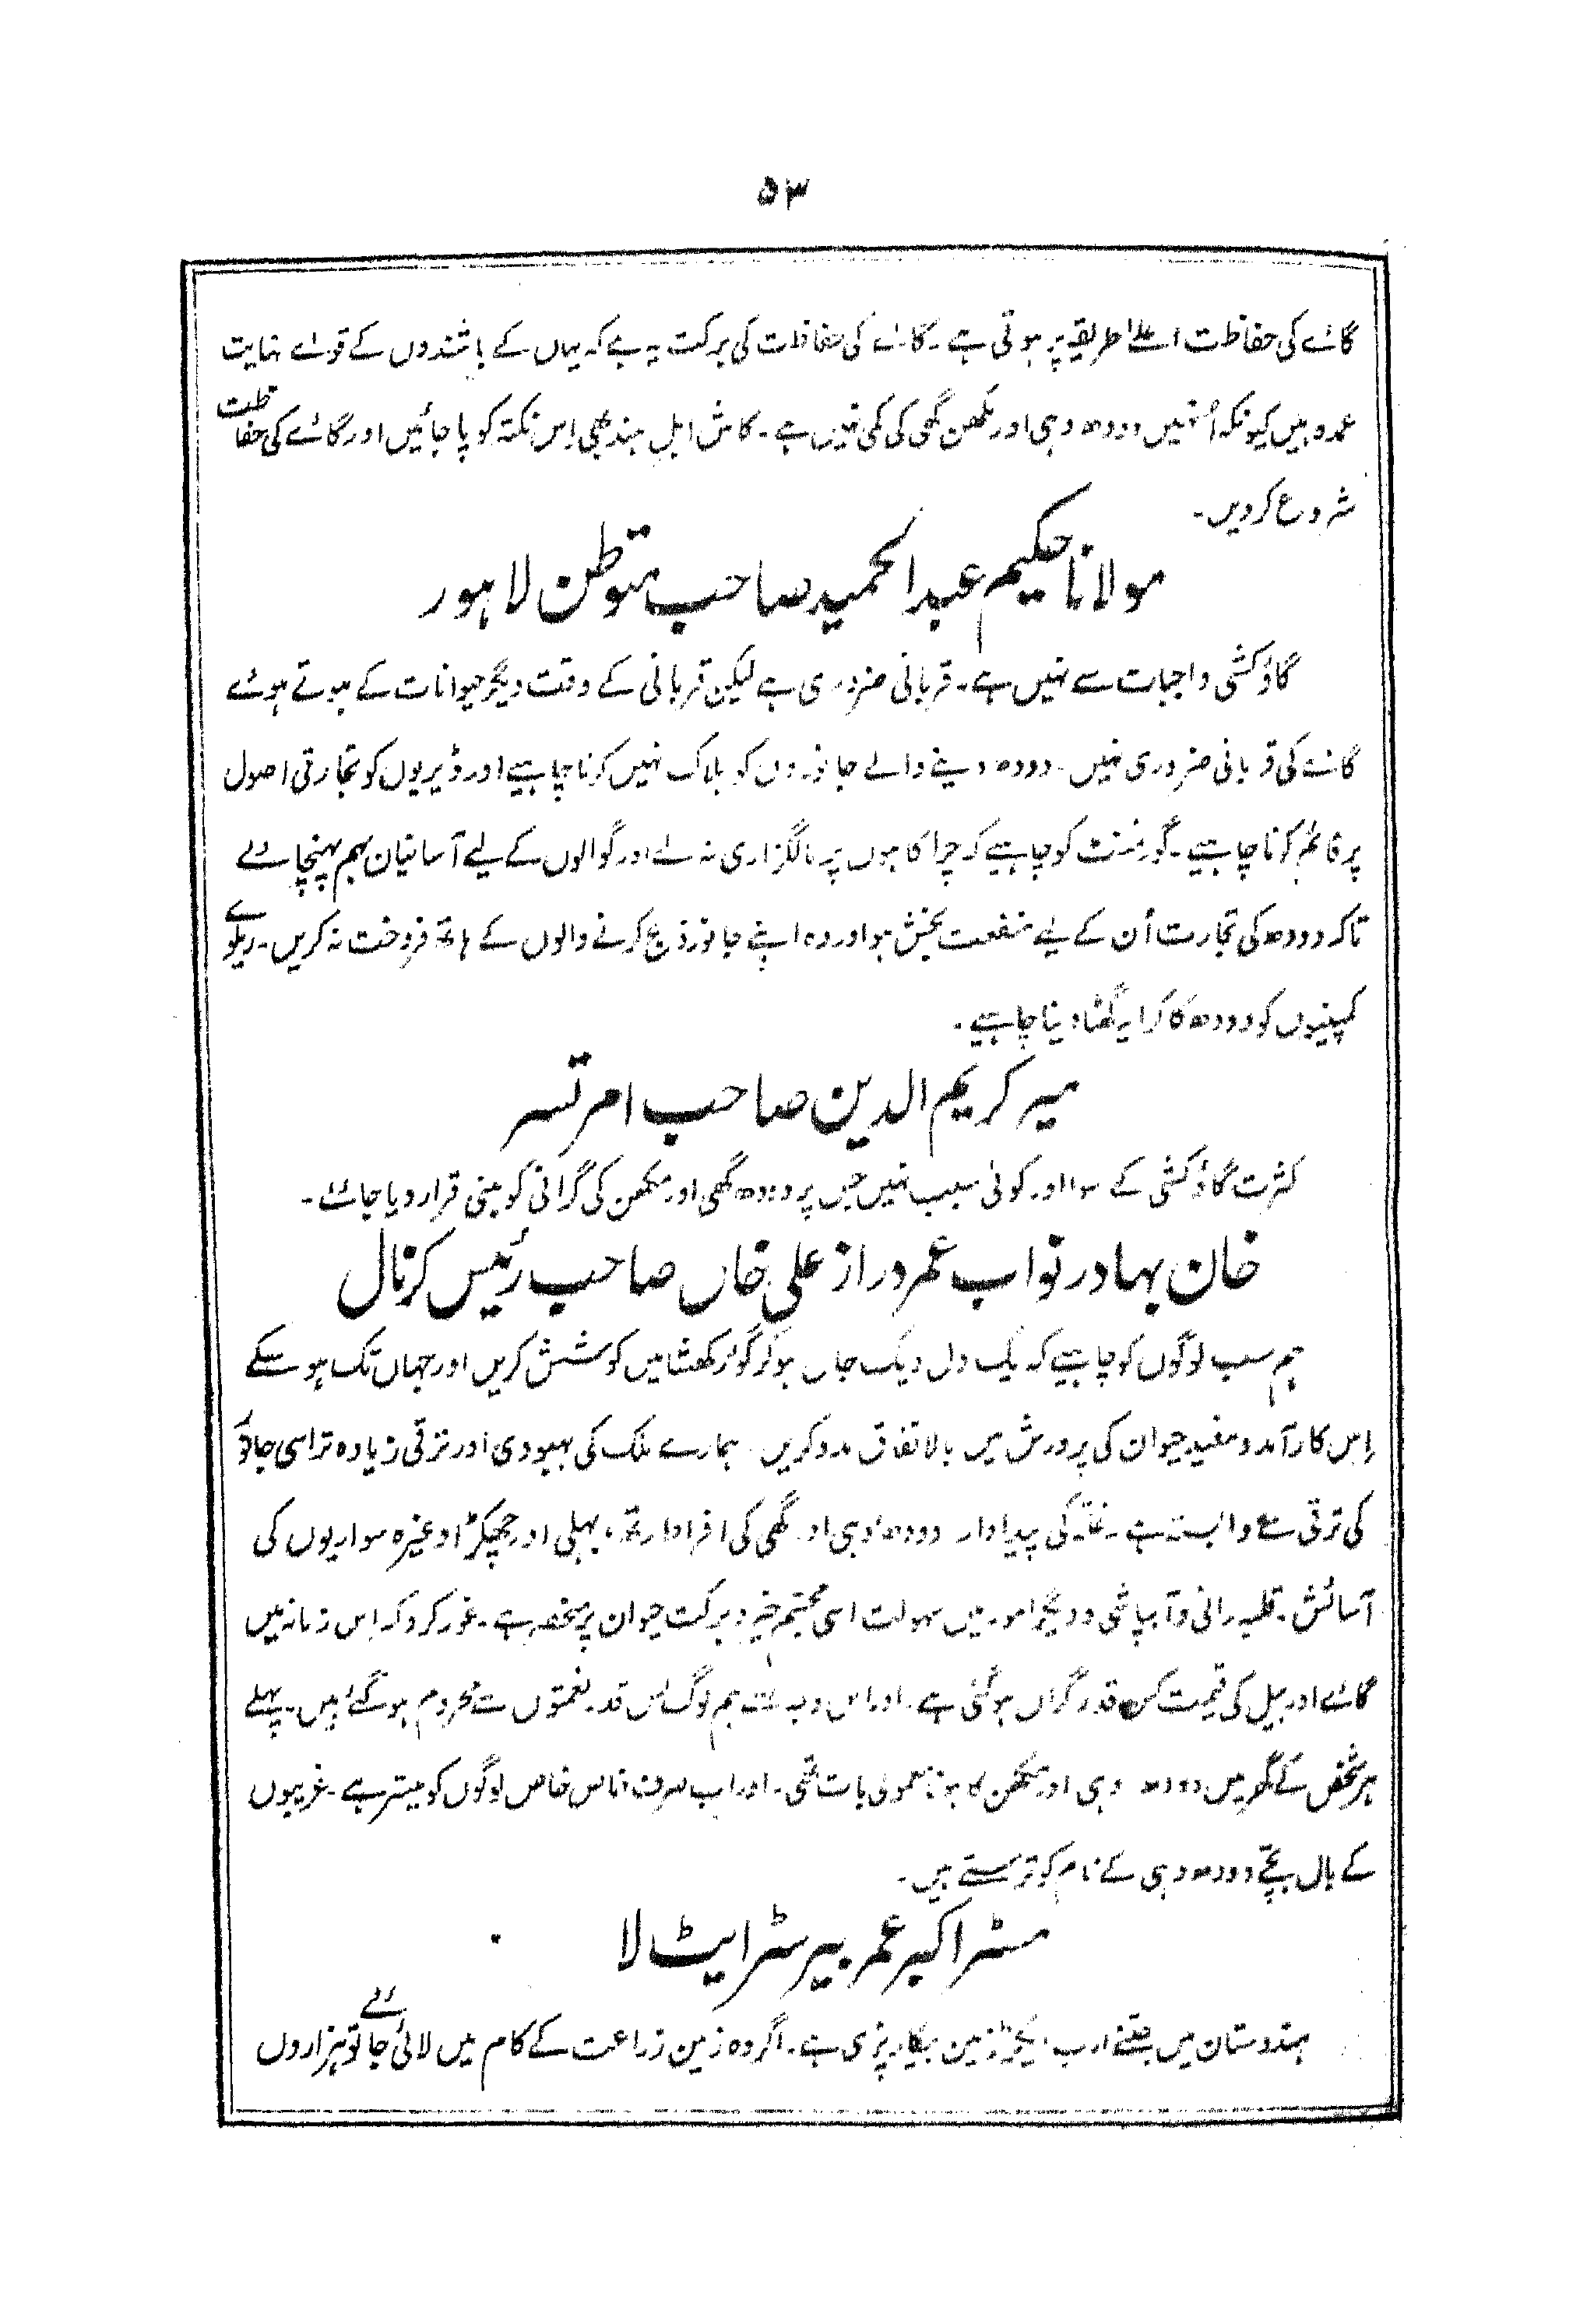 ۵۳
گائے کی حفاظت اعلےٰ طریقہ پر ہوتی ہے۔ گائے کی حفاظت کی برکت یہ ہے کہ یہاں کے باشندوں کے قواے نہایت
عمدہ ہیں کیونکہ اُنہیں دودھ دہی اور مکھن گھی کی کمی نہیں ہے۔ کاش اہل ہند بھی اِس نکتہ کو پا جائیں اور گائے کی حفاظت
شروع کر دیں۔
مولانا حکیم عبدالحمید صاحب متوطن لاہور
گاؤ کشی واجبات سے نہیں ہے۔ قربانی ضروری ہے لیکن قربانی کے وقت دیگر حیوانات کے ہوتے ہوئے
گائے کی قربانی ضروری نہیں۔ دودھ دینے والے جانوروں کو ہلاک نہیں کرنا چاہیے اور ڈیریوں کو تجارتی اصول
پر قائم کرنا چاہیے۔ گورنمنٹ کو چاہیے کہ چراگاہوں پر مالگزاری نہ لے اور گوالوں کے لیے آسانیاں بہم پہنچائے
تاکہ دودھ کی تجارت اُن کے لیے منفعت بخش ہو اور وہ اپنے جانور ذبح کرنے والوں کے ہاتھ فروخت نہ کریں۔ ریلوے
کمپنیوں کو دودھ کا کرایہ گھٹا دینا چاہیے۔
میر کریم الدین صاحب امرتسر
کثرت گاؤ کشی کے سوا اور کوئی سبب نہیں جس پر دودھ گھی اور مکھن کی گرانی کو مبنی قرار دیا جائے۔
خان بہادر نواب عمر دراز علی خاں صاحب رئیس کرنال
ہم سب لوگوں کو چاہیے کہ یک دل و یک جاں ہو کر گئو رکھشا میں کوشش کریں اور جہاں تک ہو سکے
اِس کارآمد و مفید حیوان کی پرورش میں بالاتفاق مدد کریں۔ ہمارے ملک کی بہبودی اور ترقی زیادہ تر اسی جانور
کی ترقی سے وابستہ ہے۔ غلّہ کی پیداوار دودھ دہی اور گھی کی افراط رتھ، بہلی اور چھکڑا وغیرہ سواریوں کی
آسائش۔ قلبہ رانی و آبپاشی و دیگر امور میں سہولت اسی مجسّم خیر و برکت حیوان پر منحصر ہے۔ غور کرو کہ اِس زمانہ میں
گائے اور بیل کی قیمت کس قدر گراں ہو گئی ہے۔ اور اس وجہ سے ہم لوگ کس قدر نعمتوں سے محروم ہو گئے ہیں۔ پہلے
ہر شخص کے گھر میں دودھ دہی اور مکھن کا ہونا معمولی بات تھی۔ اور اب صرف خاص خاص لوگوں کو میسّر ہے۔ غریبوں
کے بال بچّے دودھ دہی کے نام کو ترستے ہیں۔
مسٹر اکبر عمر بیرسٹر ایٹ لا
ہندوستان میں جتنے ارب ایکڑ زمین بیکار پڑی ہے۔ اگر وہ زمین زراعت کے کام میں لائی جائے تو ہزاروں